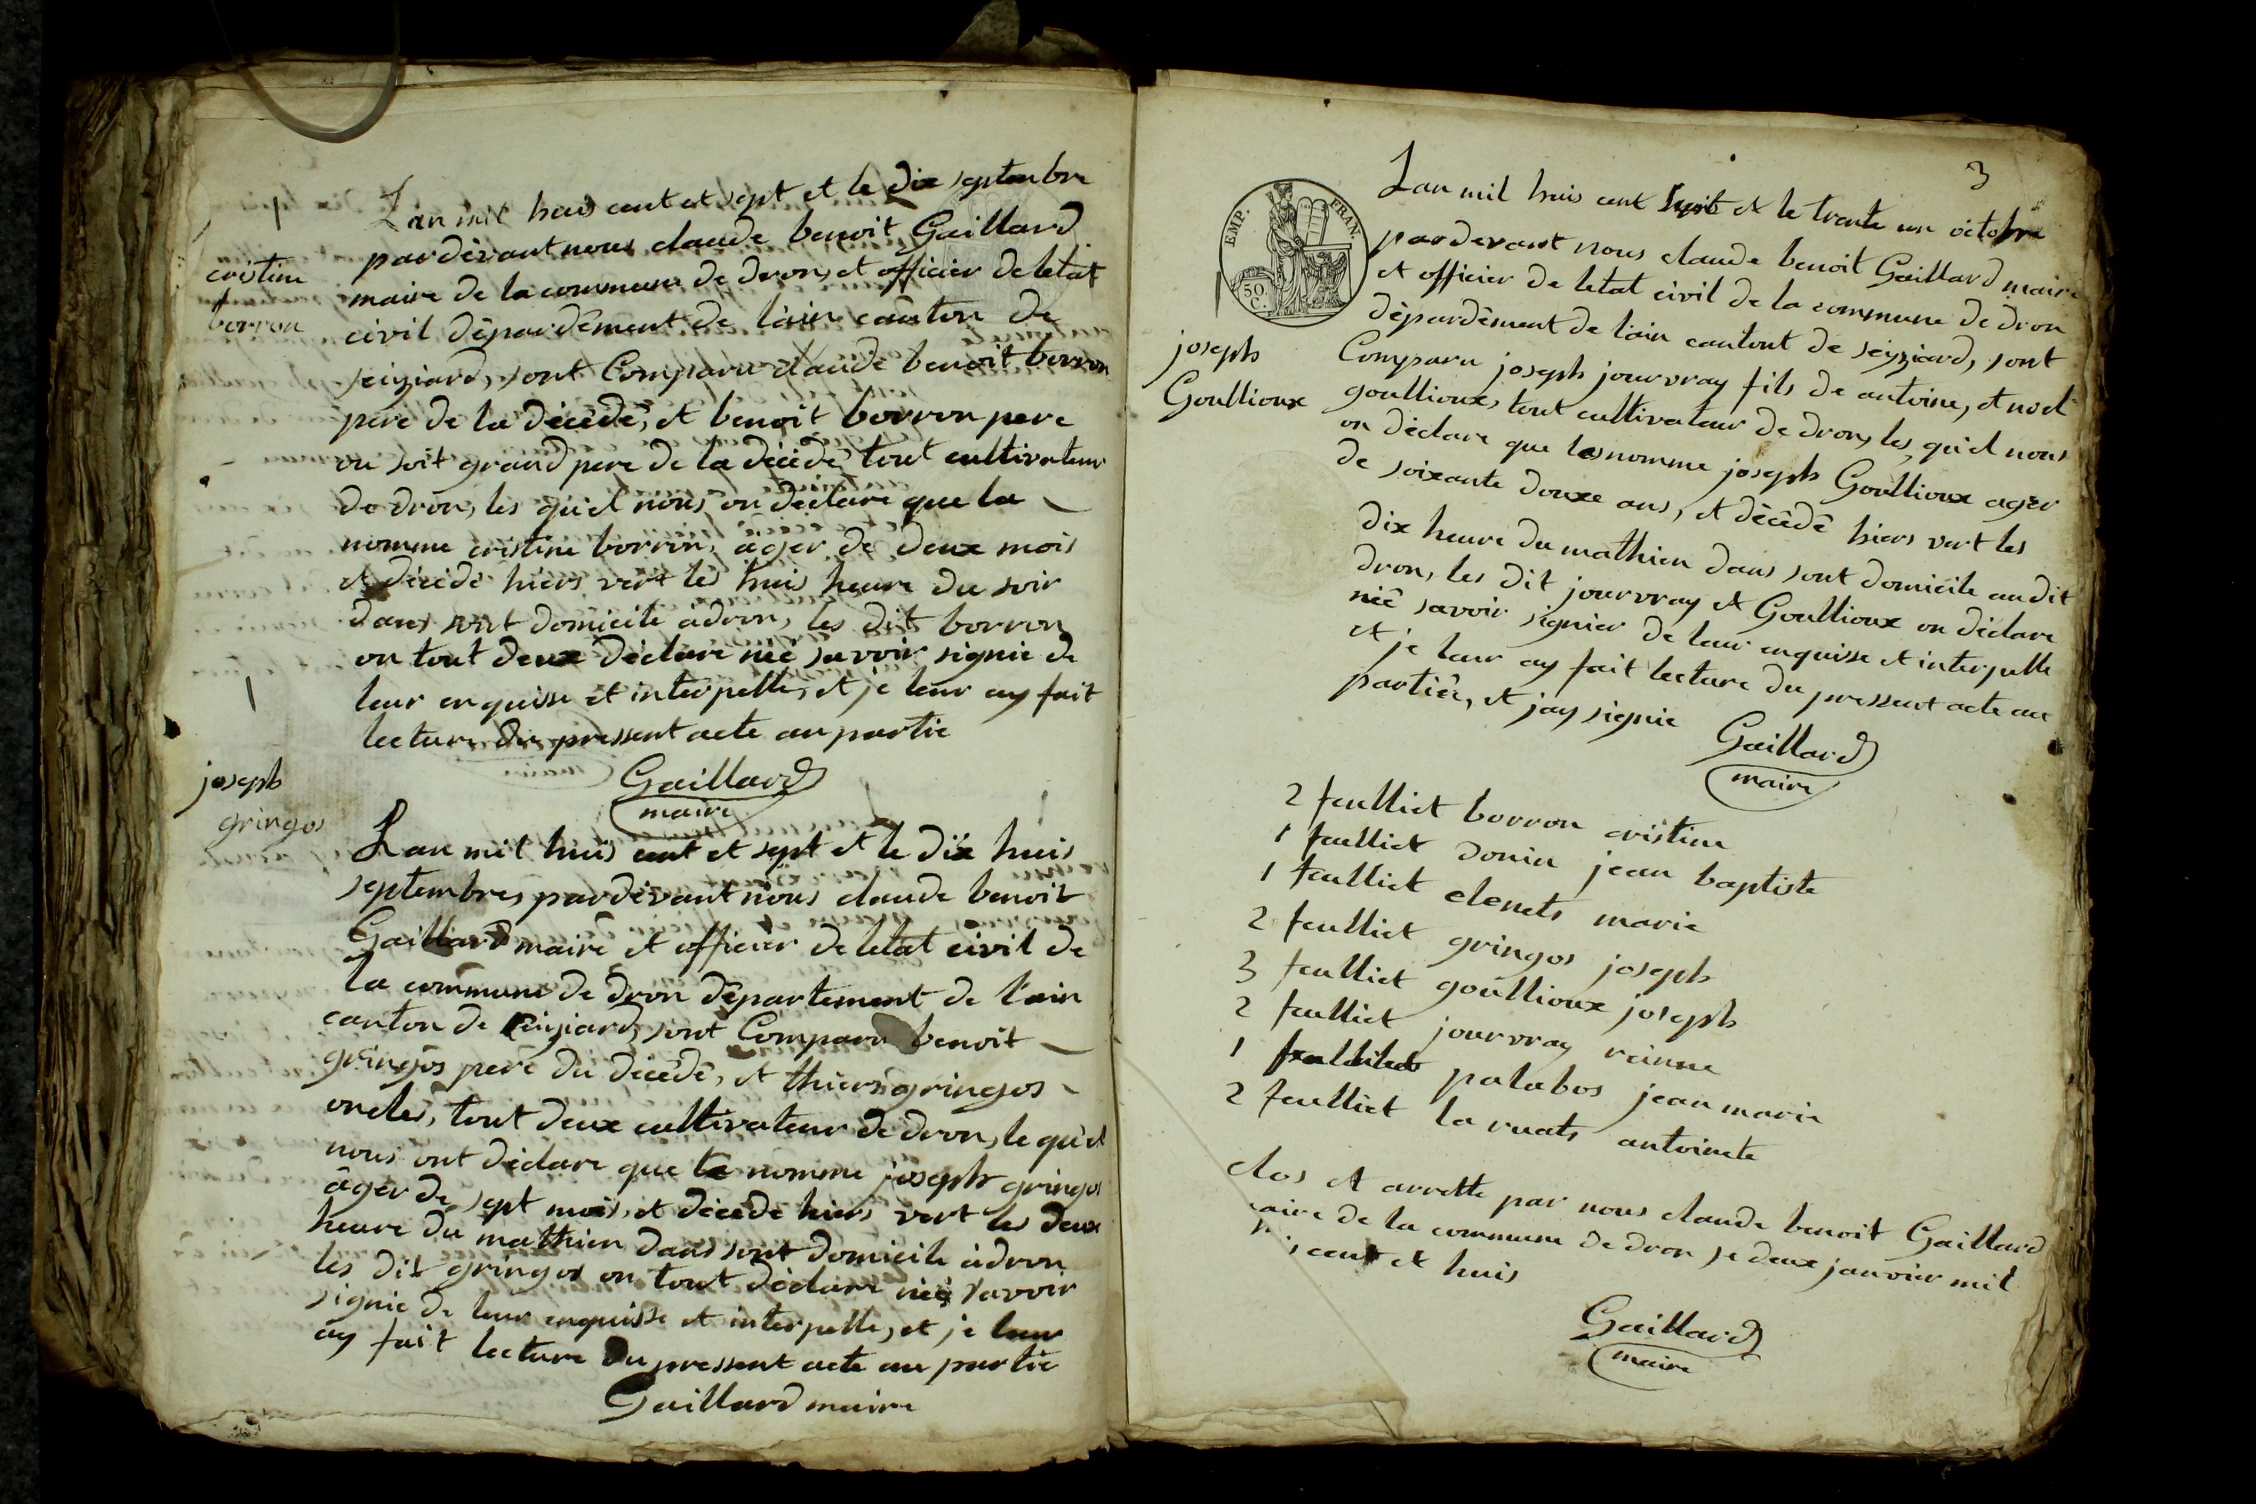 cristine
borron
Lan mil huis cent et sept et le dix septembre
pardèvant nous claude benoit Gaillard
maire de la commune de dron, et officier de letat
civil dêpardêment de lâin cânton de
seiziard, sont Comparu claude benoit borron
pere de la dècêdê, et benoit borron pere
ou soit grand pere de la dècêdê tout cultivateur
de dron, les quèl nous on dèclare que la
nomme cristine borron, âger de deux mois
et dècêdê hiers vert les huis heure du soir
dans sont domicile àdron, les dit borron
on tout deux dèclare niè savoir signie de
leur enquisse et interpelle, et je leur ay fait
lecture du pressent acte au partie
Gaillard
maire
joseph
gringos
Lan mil huis cent et sept et le dix huis
septembres pardèvant nous claude benoit
Gaillard maire et officier de letat civil de
la commune de dron dêpartement de l'ain
canton de seiziard, sont Comparu benoit
gringos pere du dècêdê, et thiers gringos
oncles, tout deux cultivateur de dron, le quèl
nous ont dèclare que le nomme joseph gringos
âger de sept mois, et dècêdê hiers vert les deux
heure du mathien dans sont domicile àdron
les dit gringos on tout dèclare niè savoir
signie de leur enquisse et interpelle, et je leur
ay fait lecture du pressent acte au partie
Gaillard maire
3
EMP. FRAN.
50 C.
joseph
Goullioux
Lan mil huis cent sept et le trente un octobre
pardevant nous claude benoit Gaillard maire
et officier de letat civil de la commune de dron
dêpardêment de l'ain cantont de seiziard, sont
Comparu joseph jourvray fils de antoine, et noel
goullioux, tout cultivateur de dron, les quèl nous
on dèclare que les nomme joseph Goullioux ager
de soixante douxe ans, et dècêdê hiers vert les
dix heure du mathien dans sont domicile au dit
dron, les dit jourvray et Goullioux on dèclare
niè savoir signier de leur enquisse et interpelle
et je leur ay fait lecture du pressent acte au
partiêr, et jay signie
Gaillard
maire
2 feulliet borron cristine
1 feulliet donin jean baptiste
1 feulliet clenets marie
2 feulliet gringos joseph
3 feulliet goullioux joseph
2 feulliet jourvray reinne
1 palabos jean marie
2 feulliet la ruats antoinete
clos et arrette par nous claude benoit Gaillard
maire de la commune de dron le deux janvier mil
cent et huis
Gaillard
maire